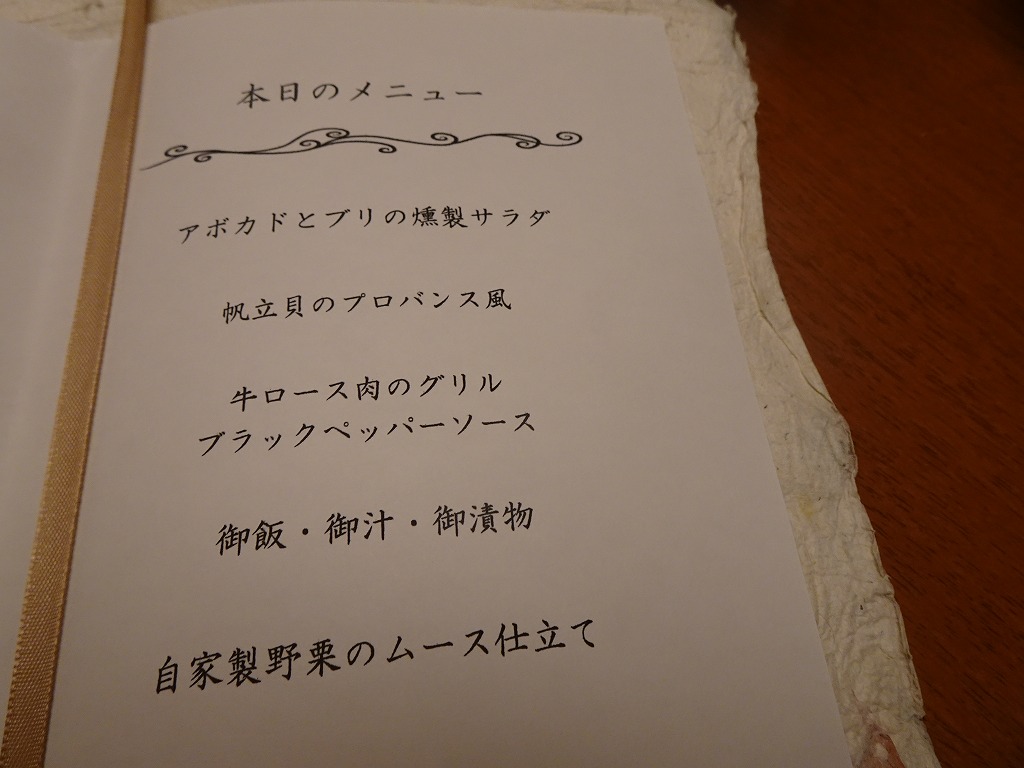 本日のメニュー
アボカドとブリの燻製サラダ
帆立貝のプロバンス風
牛ロース肉のグリル
ブラックペッパーソース
御飯・御汁・御漬物
自家製野栗のムース仕立て